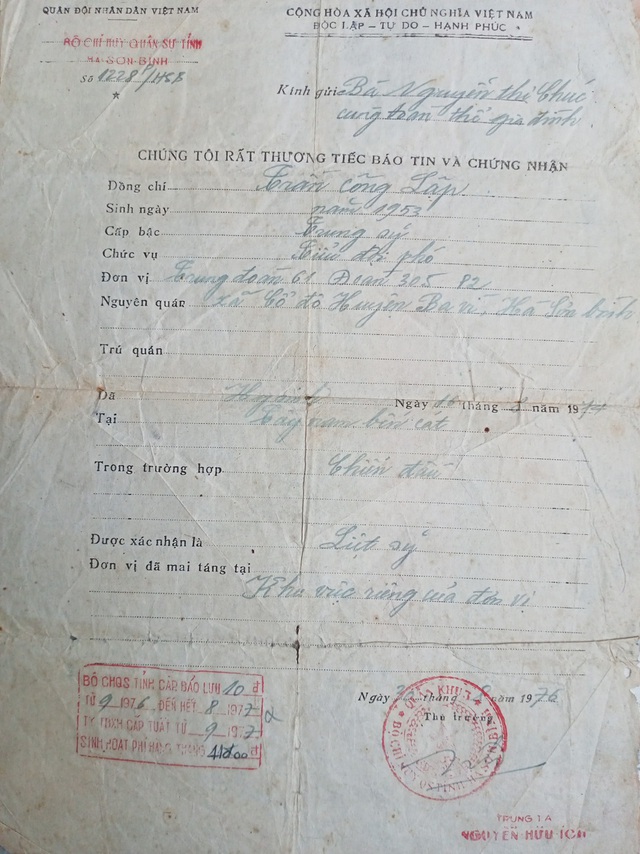 QUÂN ĐỘI NHÂN DÂN VIỆT NAM
BỘ CHỈ HUY QUÂN SỰ TỈNH
HÀ SƠN BÌNH
Số 1228/HSB
CỘNG HÒA XÃ HỘI CHỦ NGHĨA VIỆT NAM
ĐỘC LẬP – TỰ DO – HẠNH PHÚC
Kính gửi Bà Nguyễn thị Chúc
cùng toàn thể gia đình
CHÚNG TÔI RẤT THƯƠNG TIẾC BÁO TIN VÀ CHỨNG NHẬN
Đồng chí Trần công Lập
Sinh ngày năm 1953
Cấp bậc Trung sỹ
Chức vụ Tiểu đội phó
Đơn vị Trung đoàn 61 Đoàn 305
Nguyên quán xã Cổ đô Huyện Ba vì, Hà Sơn bình
Trú quán
Đã Hy sinh Ngày 16 tháng năm 197
Tại Tây nam bến cát
Trong trường hợp Chiến đấu
Được xác nhận là Liệt sỹ
Đơn vị đã mai táng tại
Khu vực riêng của đơn vị
BỘ CHQS TỈNH CẤP BẢO LƯU 10 đ
TỪ 9 1976 ĐẾN HẾT 8 1977
TY TBXH CẤP TUẤT TỪ 9 1977
SINH HOẠT PHÍ HÀNG THÁNG
Ngày tháng năm 1976
Thủ trưởng
TRUNG TÁ
NGUYỄN HỮU ÍCH